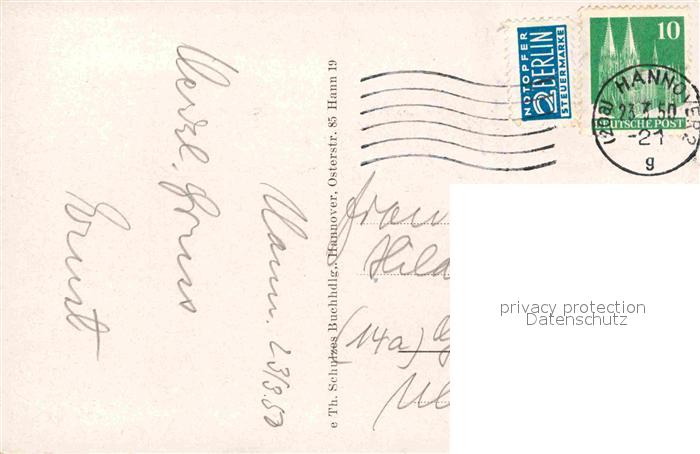 Herzl. Gruss
Ernst
Hann. 23/3.50
e Th. Schulzes Buchhdlg., Hannover, Osterstr. 85 Hann 19
NOTOPFER
2 BERLIN
STEUERMARKE
10
DEUTSCHE POST
HANNOVER 2
23.3.50
-21
g
Frau
Hild
(14a)
privacy protection
Datenschutz